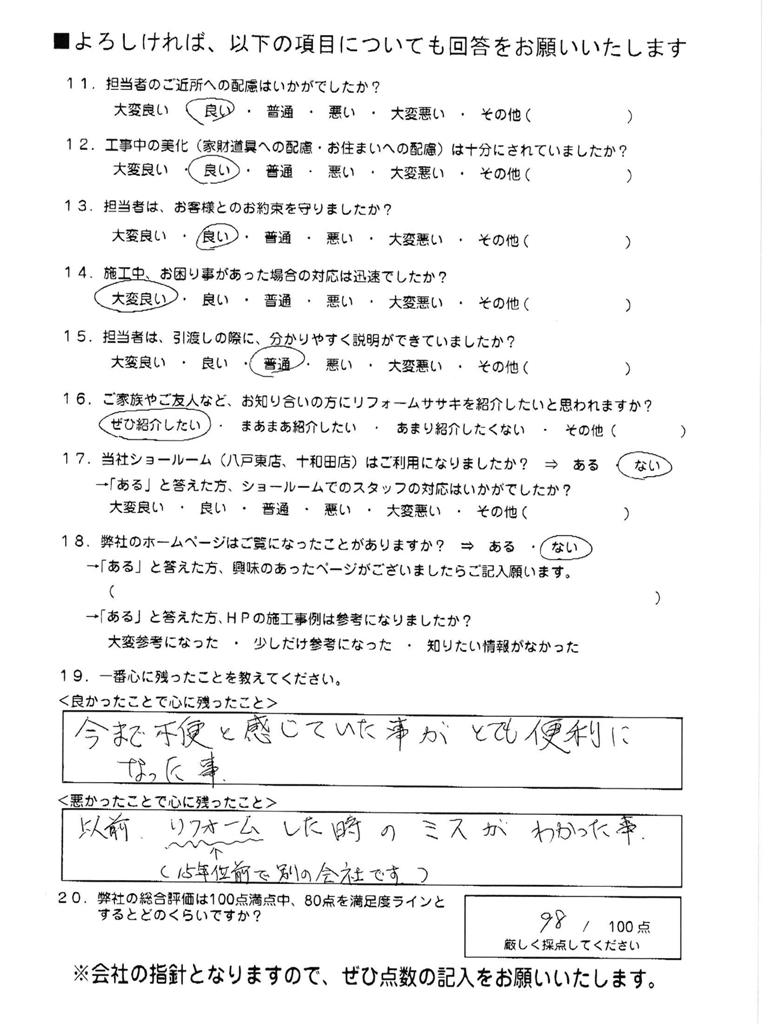 ■よろしければ、以下の項目についても回答をお願いいたします
11．担当者のご近所への配慮はいかがでしたか？
大変良い ・ 良い ・ 普通 ・ 悪い ・ 大変悪い ・ その他（ ）
12．工事中の美化（家財道具への配慮・お住まいへの配慮）は十分にされていましたか？
大変良い ・ 良い ・ 普通 ・ 悪い ・ 大変悪い ・ その他（ ）
13．担当者は、お客様とのお約束を守りましたか？
大変良い ・ 良い ・ 普通 ・ 悪い ・ 大変悪い ・ その他（ ）
14．施工中、お困り事があった場合の対応は迅速でしたか？
大変良い ・ 良い ・ 普通 ・ 悪い ・ 大変悪い ・ その他（ ）
15．担当者は、引渡しの際に、分かりやすく説明ができていましたか？
大変良い ・ 良い ・ 普通 ・ 悪い ・ 大変悪い ・ その他（ ）
16．ご家族やご友人など、お知り合いの方にリフォームササキを紹介したいと思われますか？
ぜひ紹介したい ・ まあまあ紹介したい ・ あまり紹介したくない ・ その他（ ）
17．当社ショールーム（八戸東店、十和田店）はご利用になりましたか？ ⇒ ある ・ ない
→「ある」と答えた方、ショールームでのスタッフの対応はいかがでしたか？
大変良い ・ 良い ・ 普通 ・ 悪い ・ 大変悪い ・ その他（ ）
18．弊社のホームページはご覧になったことがありますか？ ⇒ ある ・ ない
→「ある」と答えた方、興味のあったページがございましたらご記入願います。
（ ）
→「ある」と答えた方、ＨＰの施工事例は参考になりましたか？
大変参考になった ・ 少しだけ参考になった ・ 知りたい情報がなかった
19．一番心に残ったことを教えてください。
<良かったことで心に残ったこと>
今まで不便と感じていた事がとても便利に
なった事.
<悪かったことで心に残ったこと>
以前.リフォームした時のミスがわかった事.
↑
（15年位前で別の会社です）
20．弊社の総合評価は100点満点中、80点を満足度ラインと
するとどのくらいですか？
98 / 100点
厳しく採点してください
※会社の指針となりますので、ぜひ点数の記入をお願いいたします。